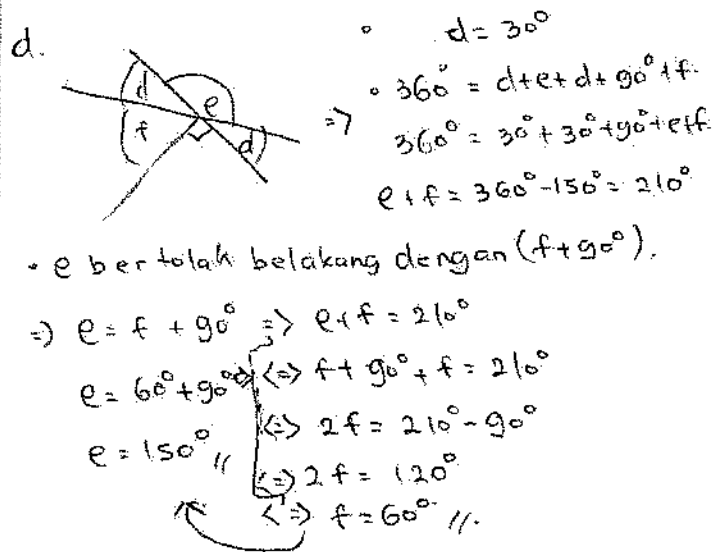 d.
d = 30°
d
e
f
d
• 360° = d+e+d+90°+f.
=> 360° = 30°+30°+90°+e+f.
e+f = 360°-150° = 210°
• e bertolak belakang dengan (f+90°).
=) e = f + 90° => e+f = 210°
e = 60°+90° <=> f+90°+f = 210°
e = 150° // <=> 2f = 210°-90°
<=> 2f = 120°
<=> f = 60° //.